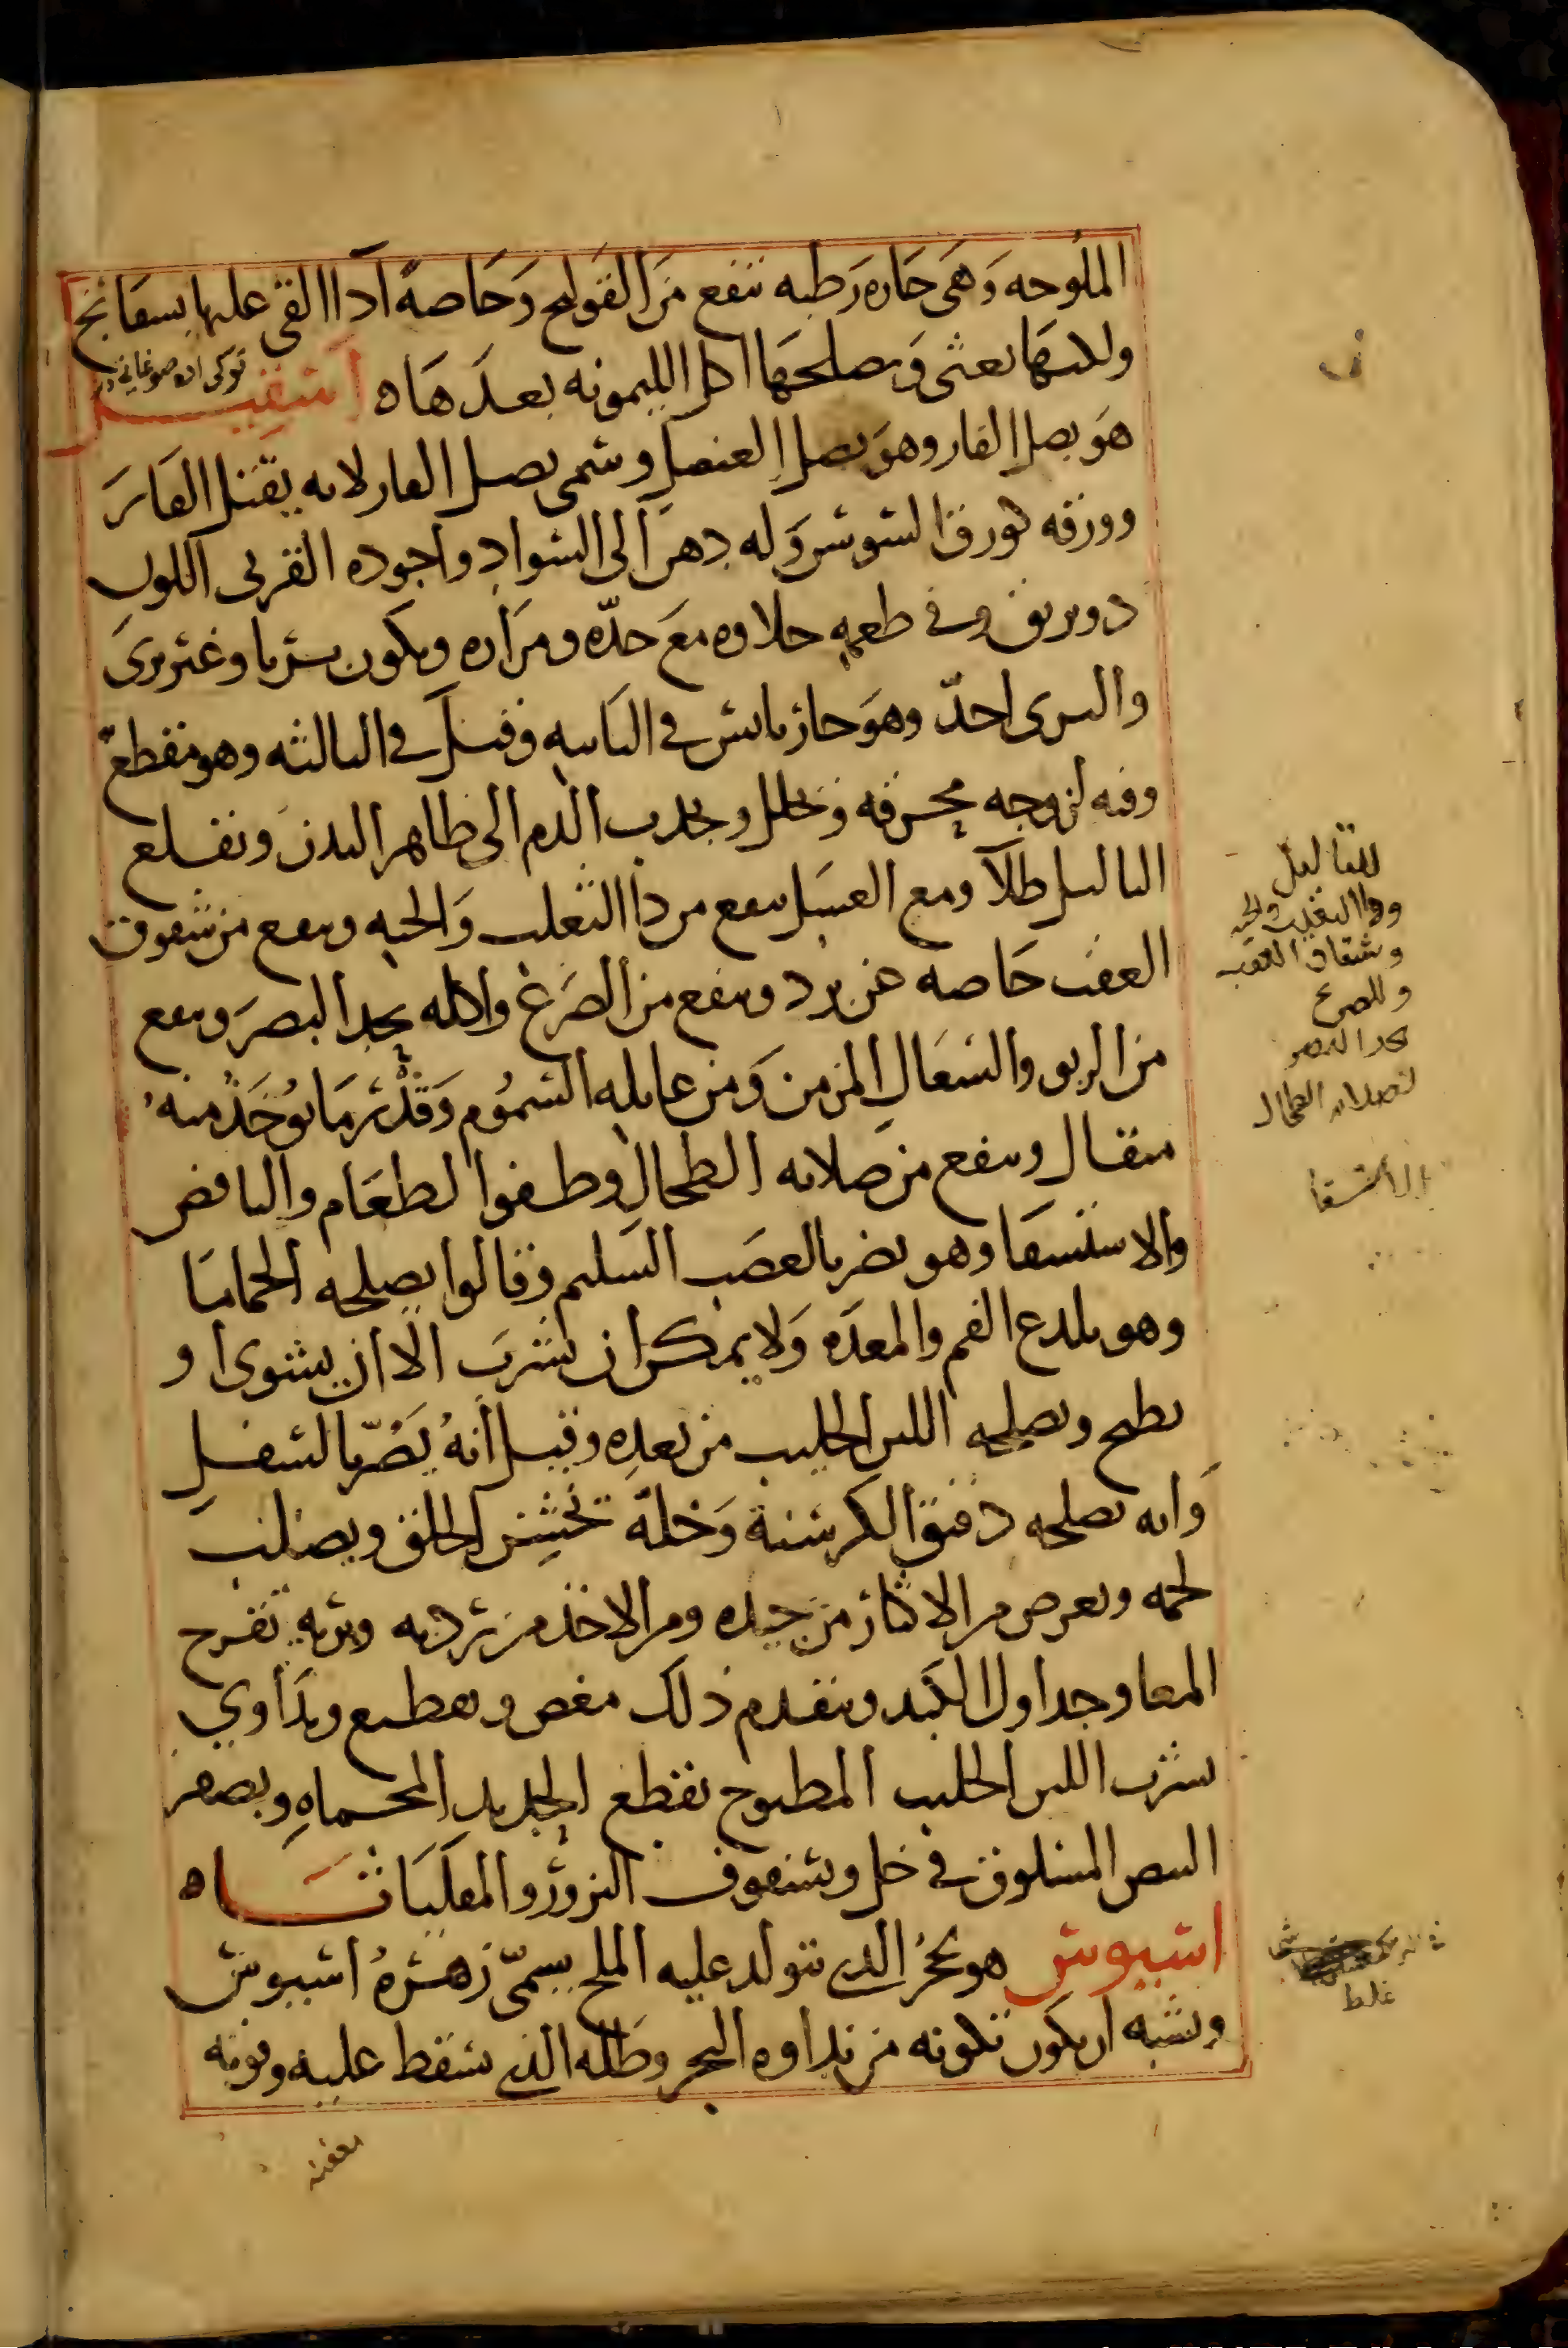 الملوحه وهى حاره رطبه تنفع من القولنج وخاصة اذا القى عليها بسفايج
ولكنها تغثى ومصلحها اكل الليمونه بعدها ه اشقيل
هو بصل الفار وهو بصل العنصل وسمى بصل الفار لانه يقتل الفار
وورقه كورق السوسن وله زهر الى السواد واجوده القرنى اللون
ذو بريق وفى طعمه حلاوه مع حده ومراره ويكون بستانيا وغير برى
والبرى احدّ وهو حار يابس فى الثانيه وقيل فى الثالثه وهو مقطع
وفيه لزوجه محرقه ويحلل ويجذب الدم الى ظاهر البدن ويقلع
الثاليل طلا ومع العسل ينفع من دا الثعلب والحيه وينفع من شقوق
العقب خاصه عن برد وينفع من الصرع واكله يحد البصر وينفع
من الربو والسعال المزمن ومن غايله السموم وقدر ما يوخذ منه
مثقال وينفع من صلابه الطحال وطفوا لطعام والنافض
والاستسقا وهو يضر بالعصب السليم وقالوا يصلحه الحماما
وهو يلدع الفم والمعده ولا يمكن ان يشرب الا ان يشوى او
يطبخ ويصلحه اللبن الحليب من بعده وقيل انه يضر بالسفل
وانه يصلحه دقيق الكرسنة وخله يخشن الحلق ويصلب
لحمه ويعرض من الاكثار من جيده ومن الاخذ من رديه وبريه تقرح
المعا وجداول الكبد ويتقدم ذلك مغص وتقطيع ويداوي
بشرب اللبن الحليب المطبوخ بقطع الحديد المحماه وبصفر
البيض المسلوق فى خل وبسفوف البزور والمقلياثا ه
اسيوس هو بحر الذى يتولد عليه الملح يسمى زهره اسيوس
ويشبه ان يكون تكونه من نداوه البحر وطله الذى يسقط عليه وقوته
للثاليل
ودا الثعلب والحيه
وشقاق العقب
وللصرع
يحد البصر
لصلابه الطحال
الاستسقا
غلط
معفنه